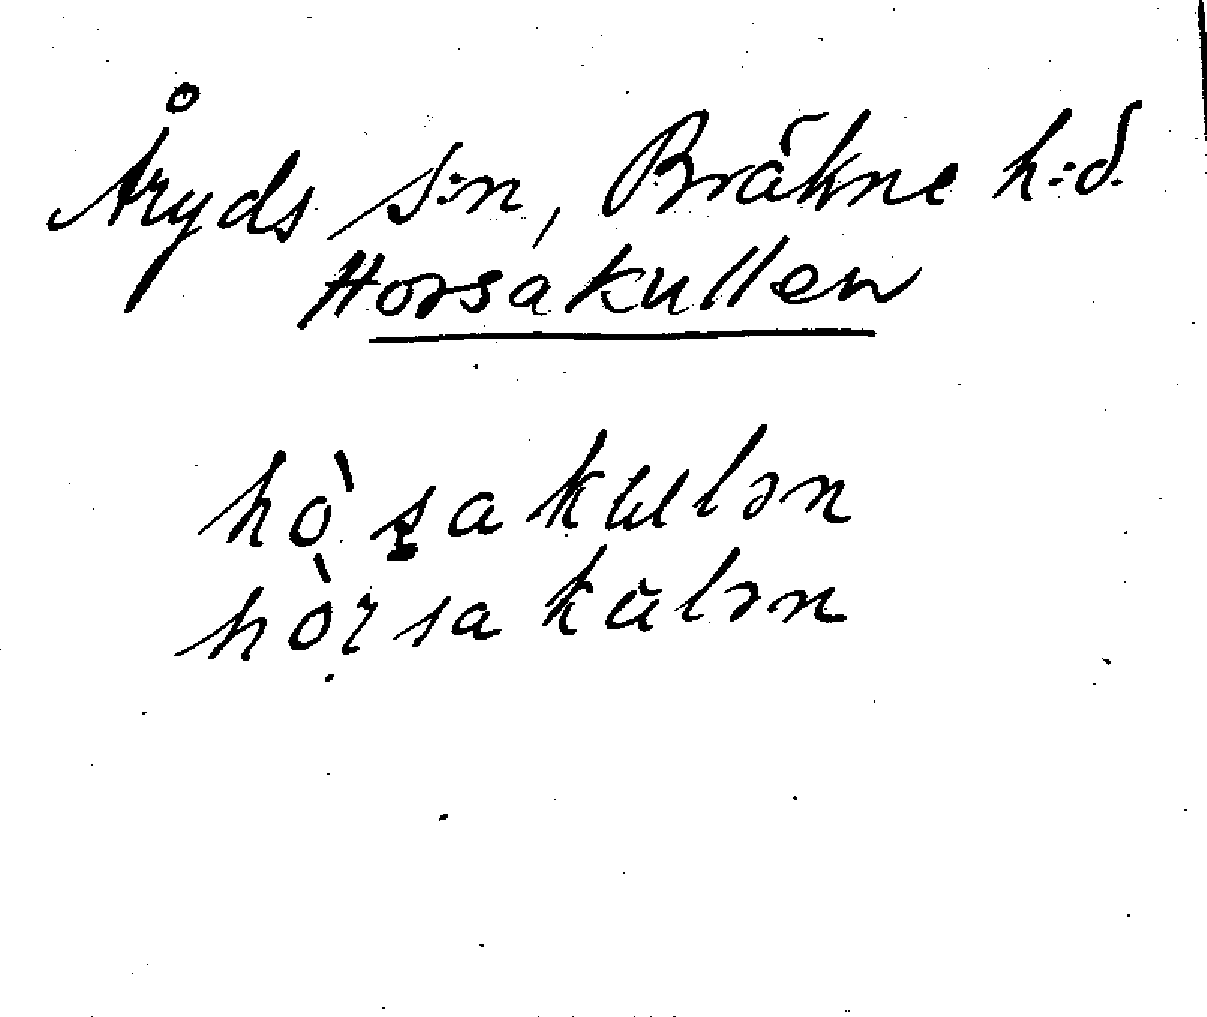 Åryds s:n, Bräkne h:d.
Horsakullen
hòʂakulən
hòrsakulən